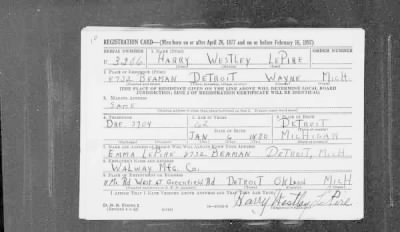 REGISTRATION CARD—(Men born on or after April 28, 1877 and on or before February 16, 1897)
SERIAL NUMBER 1. NAME (Print) ORDER NUMBER
U 3206 HARRY WESTLEY LEPIRE
(First) (Middle) (Last)
2. PLACE OF RESIDENCE (Print)
8752 BEAMAN DETROIT WAYNE MICH
(Number and street) (Town, township, village, or city) (County) (State)
[THE PLACE OF RESIDENCE GIVEN ON THE LINE ABOVE WILL DETERMINE LOCAL BOARD
JURISDICTION; LINE 2 OF REGISTRATION CERTIFICATE WILL BE IDENTICAL]
3. MAILING ADDRESS
SAME
4. TELEPHONE 5. AGE IN YEARS 6. PLACE OF BIRTH
62 DETROIT
DATE OF BIRTH
JAN 6 1880 MICHIGAN
(Mo.) (Day) (Yr.) (State or country)
7. NAME AND ADDRESS OF PERSON WHO WILL ALWAYS KNOW YOUR ADDRESS
EMMA LEPIRE 8752 BEAMAN DETROIT, MICH
8. EMPLOYER'S NAME AND ADDRESS
WALWAY MFG. CO.
9. PLACE OF EMPLOYMENT OR BUSINESS
8 MI. RD WEST AT GREENFIELD RD DETROIT MICH
I AFFIRM THAT I HAVE VERIFIED ABOVE ANSWERS AND THAT THEY ARE TRUE.
D. S. S. Form 1
Harry Westley LePire